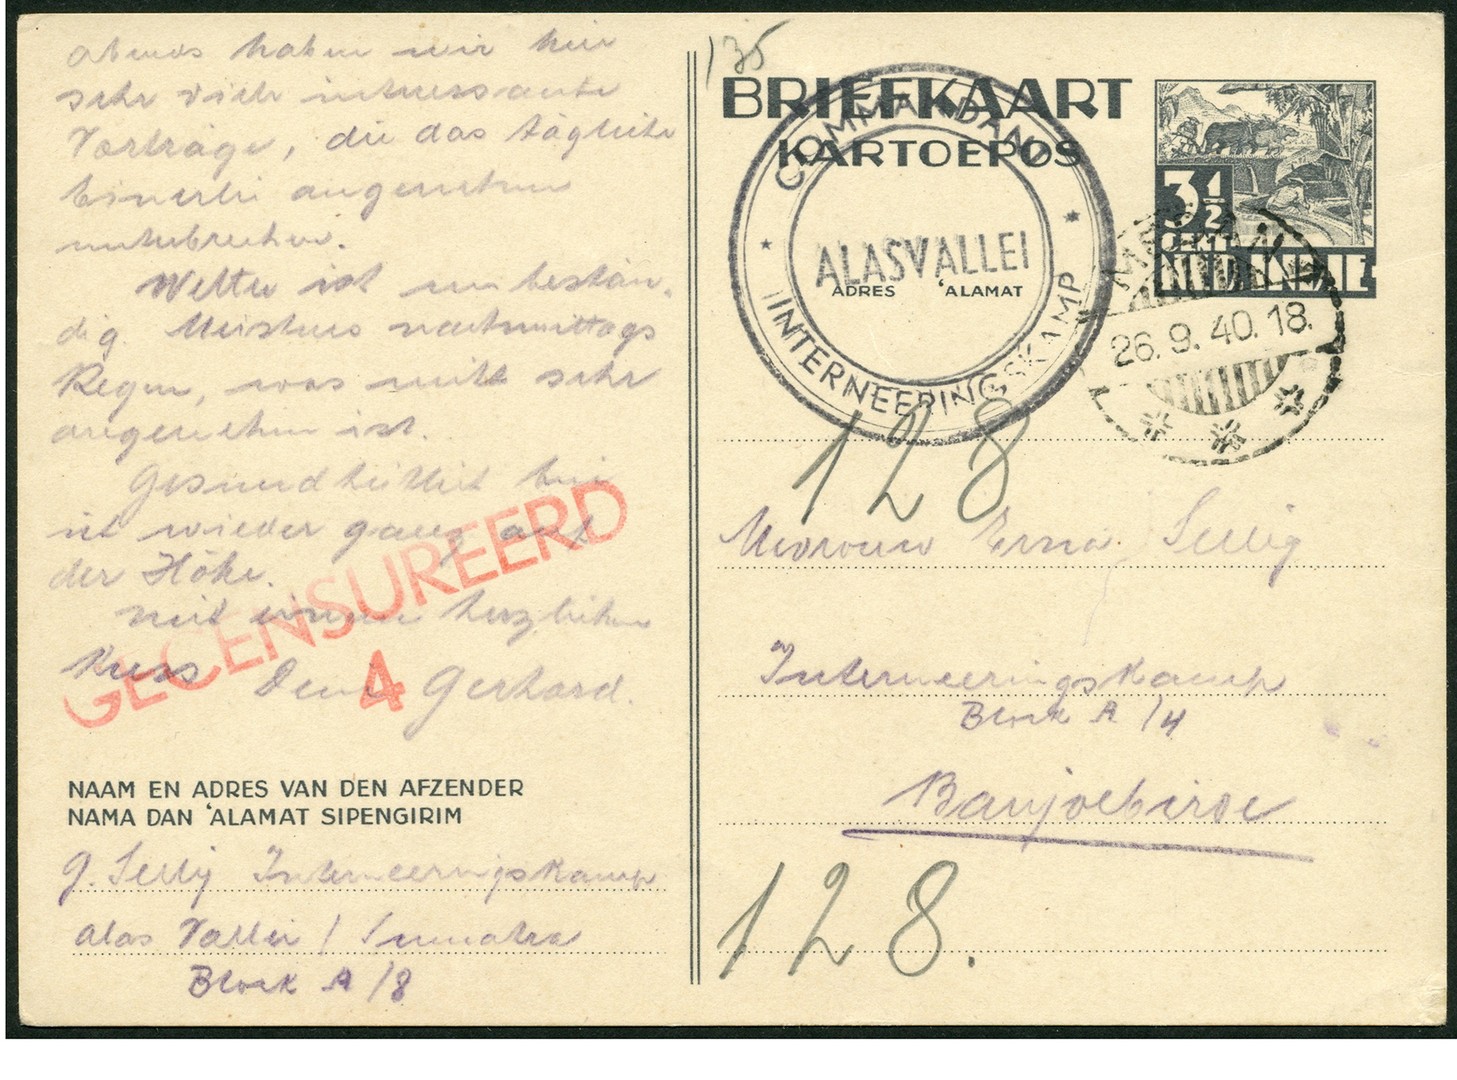 abends haben wir hier
sehr viele interessante
Vorträge, die das tägliche
Einerlei angenehm
unterbrechen.
Wetter ist unbestän-
dig. Meistens nachmittags
Regen, was nicht sehr
angenehm ist.
Gesundheitlich bin
ich wieder ganz auf
der Höhe.
Mit einem herzlichen
Kuss Dein Gerhard.
GECENSUREERD
4
NAAM EN ADRES VAN DEN AFZENDER
NAMA DAN 'ALAMAT SIPENGIRIM
G. Sellig Interneeringskamp
Alas Vallei / Sumatra
Block A/8
135
BRIEFKAART
KARTOEPOS
COMMANDANT
ALASVALLEI
INTERNEERINGSKAMP
ADRES 'ALAMAT
3 1/2
CENT
NED. INDIE
26.9.40.18.
128
Mevrouw Erna Sellig
Interneeringskamp
Block A/4
Banjoebiroe
128.